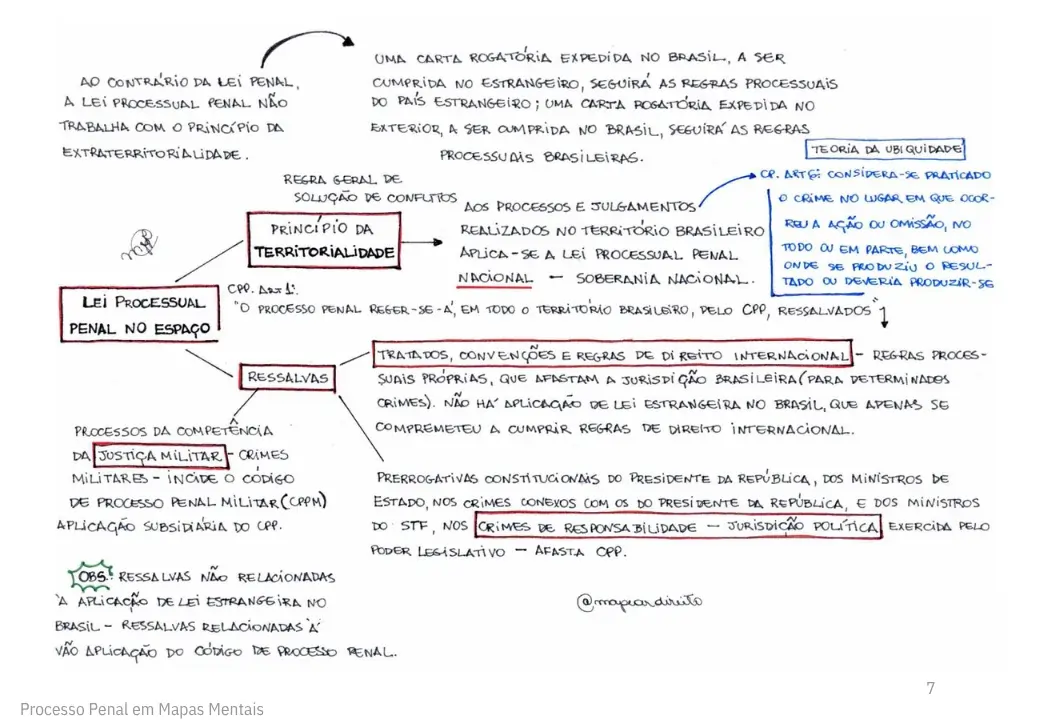 AO CONTRÁRIO DA LEI PENAL,
A LEI PROCESSUAL PENAL NÃO
TRABALHA COM O PRINCÍPIO DA
EXTRATERRITORIALIDADE.
UMA CARTA ROGATÓRIA EXPEDIDA NO BRASIL, A SER
CUMPRIDA NO ESTRANGEIRO, SEGUIRÁ AS REGRAS PROCESSUAIS
DO PAÍS ESTRANGEIRO; UMA CARTA ROGATÓRIA EXPEDIDA NO
EXTERIOR, A SER CUMPRIDA NO BRASIL, SEGUIRÁ AS REGRAS
PROCESSUAIS BRASILEIRAS.
TEORIA DA UBIQUIDADE
CP. ART 6: CONSIDERA-SE PRATICADO
O CRIME NO LUGAR EM QUE OCOR-
REU A AÇÃO OU OMISSÃO, NO
TODO OU EM PARTE, BEM COMO
ONDE SE PRODUZIU O RESUL-
TADO OU DEVERIA PRODUZIR-SE
REGRA GERAL DE
SOLUÇÃO DE CONFLITOS
PRINCÍPIO DA
TERRITORIALIDADE
AOS PROCESSOS E JULGAMENTOS
REALIZADOS NO TERRITÓRIO BRASILEIRO
APLICA-SE A LEI PROCESSUAL PENAL
NACIONAL — SOBERANIA NACIONAL.
LEI PROCESSUAL
PENAL NO ESPAÇO
CPP. ART 1º:
"O PROCESSO PENAL REGER-SE-Á, EM TODO O TERRITÓRIO BRASILEIRO, PELO CPP, RESSALVADOS"
RESSALVAS
TRATADOS, CONVENÇÕES E REGRAS DE DIREITO INTERNACIONAL - REGRAS PROCES-
SUAIS PRÓPRIAS, QUE AFASTAM A JURISDIÇÃO BRASILEIRA (PARA DETERMINADOS
CRIMES). NÃO HÁ APLICAÇÃO DE LEI ESTRANGEIRA NO BRASIL, QUE APENAS SE
COMPREMETEU A CUMPRIR REGRAS DE DIREITO INTERNACIONAL.
PROCESSOS DA COMPETÊNCIA
DA JUSTIÇA MILITAR - CRIMES
MILITARES - INCIDE O CÓDIGO
DE PROCESSO PENAL MILITAR (CPPM)
APLICAÇÃO SUBSIDIÁRIA DO CPP.
PRERROGATIVAS CONSTITUCIONAIS DO PRESIDENTE DA REPÚBLICA, DOS MINISTROS DE
ESTADO, NOS CRIMES CONEXOS COM OS DO PRESIDENTE DA REPÚBLICA, E DOS MINISTROS
DO STF, NOS CRIMES DE RESPONSABILIDADE — JURISDIÇÃO POLÍTICA, EXERCIDA PELO
PODER LEGISLATIVO — AFASTA CPP.
OBS: RESSALVAS NÃO RELACIONADAS
À APLICAÇÃO DE LEI ESTRANGEIRA NO
BRASIL - RESSALVAS RELACIONADAS À
VÃO APLICAÇÃO DO CÓDIGO DE PROCESSO PENAL.
@mapeardireito
7
Processo Penal em Mapas Mentais